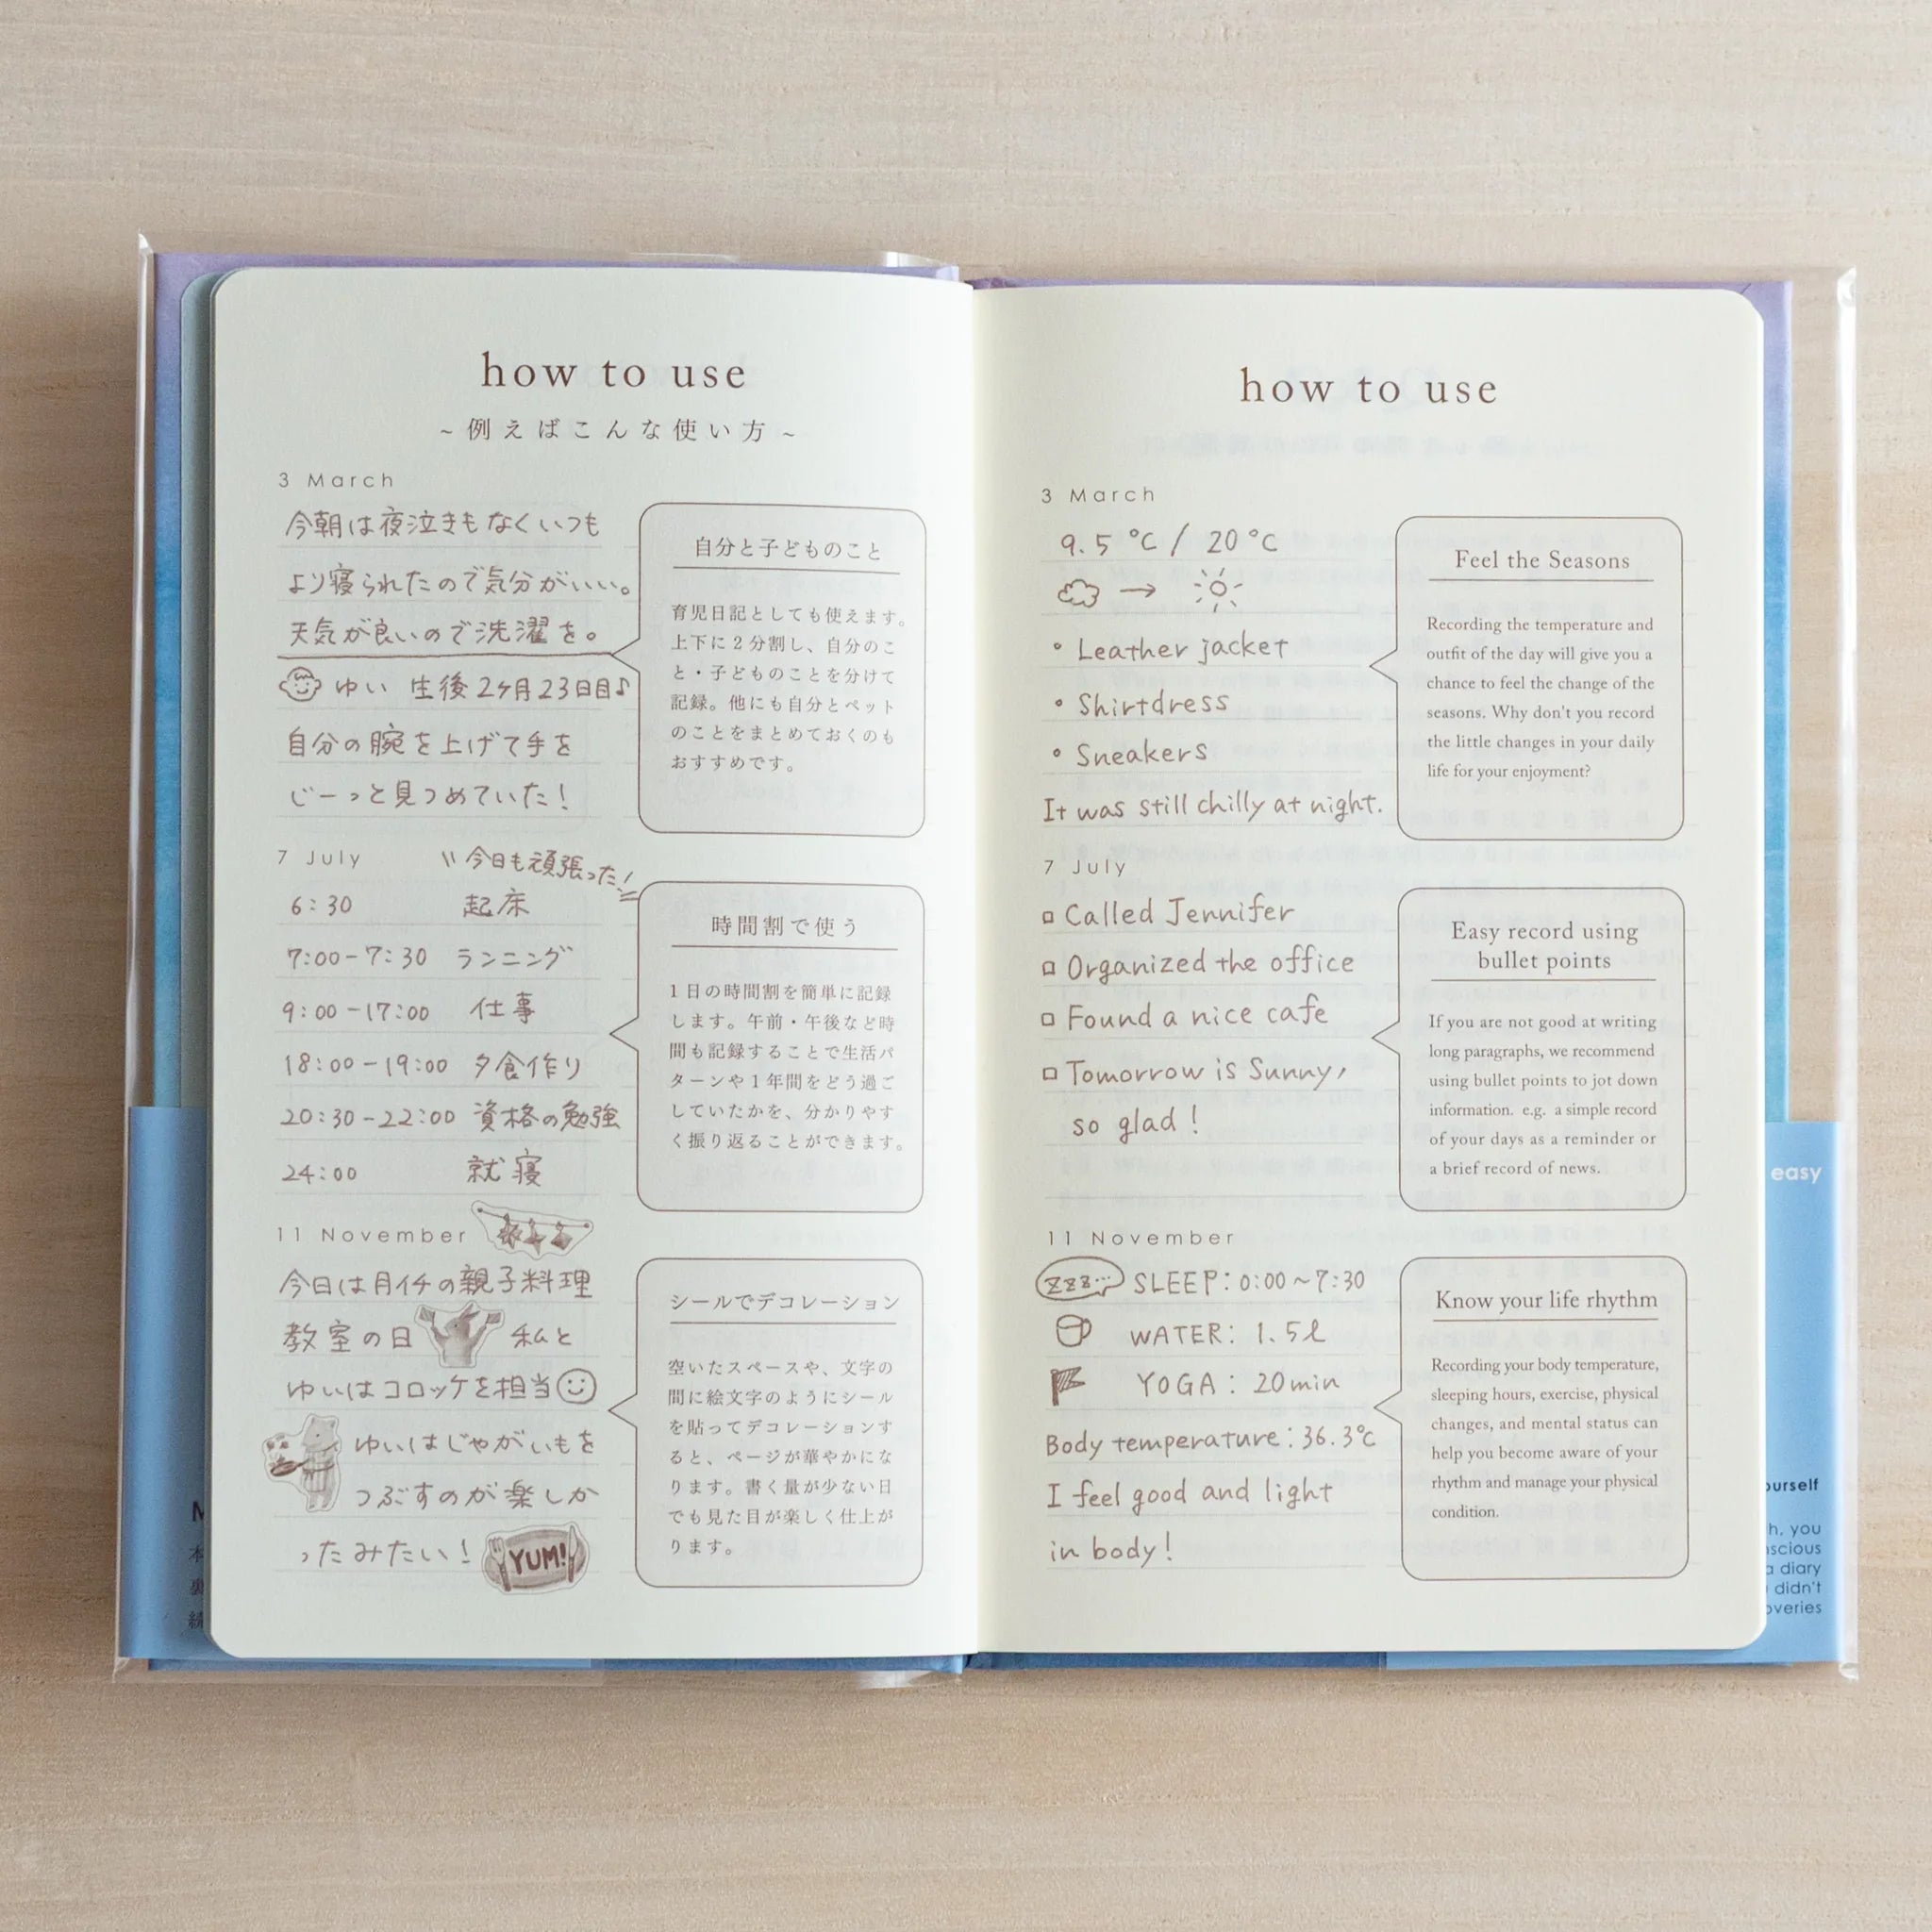 how to use
~例えばこんな使い方~
3 March
今朝は夜泣きもなくいつも
より寝られたので気分がいい。
天気が良いので洗濯を。
ゆい 生後2ヶ月23日目♪
自分の腕を上げて手を
じーっと見つめていた!
自分と子どものこと
育児日記としても使えます。
上下に2分割し、自分のこ
と・子どものことを分けて
記録。他にも自分とペット
のことをまとめておくのも
おすすめです。
7 July
今日も頑張った!
6:30 起床
7:00-7:30 ランニング
9:00-17:00 仕事
18:00-19:00 夕食作り
20:30-22:00 資格の勉強
24:00 就寝
時間割で使う
1日の時間割を簡単に記録
します。午前・午後など時
間も記録することで生活パ
ターンや1年間をどう過ご
していたかを、分かりやす
く振り返ることができます。
11 November
今日は月イチの親子料理
教室の日 私と
ゆいはコロッケを担当
ゆいはじゃがいもを
つぶすのが楽しか
ったみたい!
YUM!
シールでデコレーション
空いたスペースや、文字の
間に絵文字のようにシール
を貼ってデコレーションす
ると、ページが華やかにな
ります。書く量が少ない日
でも見た目が楽しく仕上が
ります。
how to use
3 March
9.5 °C / 20 °C
→
• Leather jacket
• Shirtdress
• Sneakers
It was still chilly at night.
Feel the Seasons
Recording the temperature and
outfit of the day will give you a
chance to feel the change of the
seasons. Why don't you record
the little changes in your daily
life for your enjoyment?
7 July
Called Jennifer
Organized the office
Found a nice cafe
Tomorrow is Sunny,
so glad!
Easy record using
bullet points
If you are not good at writing
long paragraphs, we recommend
using bullet points to jot down
information. e.g. a simple record
of your days as a reminder or
a brief record of news.
11 November
zzz... SLEEP: 0:00~7:30
WATER: 1.5ℓ
YOGA: 20min
Body temperature: 36.3℃
I feel good and light
in body!
Know your life rhythm
Recording your body temperature,
sleeping hours, exercise, physical
changes, and mental status can
help you become aware of your
rhythm and manage your physical
condition.
easy
you
diary
didn't